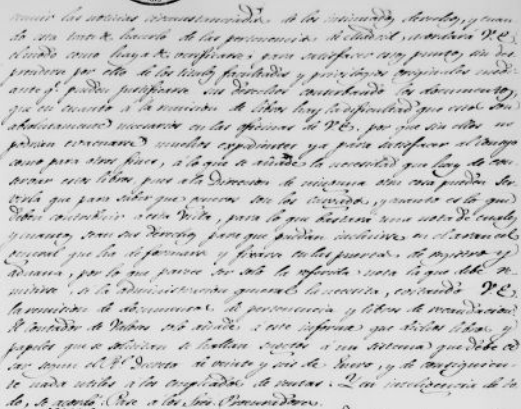 reunir las noticias circunstanciadas de los intimados derechos, y cuan
do esta trate de hacerlo de las pertenencias de Madrid, acordará V.E.
el modo como haya de verificarse, para satisfacer estos puntos, sin des
prenderse por ello de los titulos, facultades y privilegios originales
que puedan justificarse sus derechos los documentos,
que en cuanto á la remision de libros hay la dificultad que estos son
absolutamente necesarios en las oficinas de V.E. por que sin ellos no
podrian evacuarse muchos expedientes ya para satisfacer al Consejo
como para otros fines, á lo que se añade la necesidad que hay de con
servar estos libros, pues á la Direccion de ninguna otra cosa pueden ser
virla que para saber que ramos son los y quanto es lo que
deben contribuir á esta Villa, para lo que bastará una nota de cuales
y cuantos sean sus derechos para que puedan incluirse en el arancel
general que ha de formarse y fixarse en las puertas de registro y
aduana, por lo que parece ser solo la referida nota la que debe re
mitirse, si la administracion general la necesita, evitando V.E.
la remision de documentos de pertenencia y libros de recaudacion.
El contador de Valores solo añade á este informe que dichos libros y
papeles que se solicitan se hallan sujetos á un sistema que debe ce
sar segun el Rl. Decreto de veinte y seis de Enero, y de consiguien
te nada utiles á los empleados de rentas. Y en inteligencia de to
do, se acordó: Pase á los Sres. Procuradores